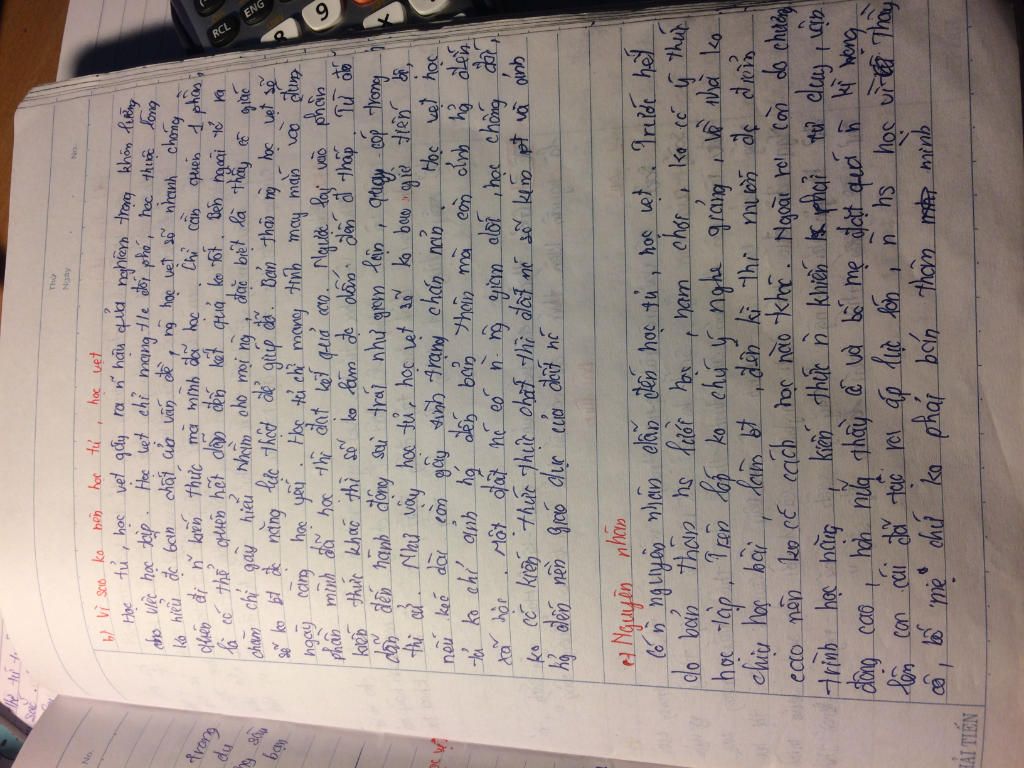 Thứ
Ngày
No.
b) Vì sao ko nên học tủ, học vẹt
Học tủ, học vẹt gây ra n̄ hậu quả nghiêm trọng khôn lường
cho việc học tập. Học vẹt chỉ mang t/c đối phó, học thuộc lòng
ko hiểu đc bản chất của vấn đề, ng học vẹt sẽ nhanh chóng
quên đi n̄ kiến thức mà mình đã học. Chỉ cần quên 1 phần,
là có thể quên hết dẫn đến kết quả ko tốt. Bên ngoài tỏ ra
chăm chỉ gây hiểu nhầm cho mọi ng, đặc biệt là thầy cô giáo
sẽ ko bt đc năng lực thật để giúp đỡ. Bản thân ng học vẹt sẽ
ngày càng học yếu. Học tủ chỉ mang tính may mắn vào đúng
phần mình đã học thì đạt kết quả cao. Ngược lại vào phần
kiến thức khác thì sẽ ko làm đc dẫn đến đ thấp. Từ đó
dẫn đến hành động sai trái như gian lận, quay cóp trong
thi cử. Như vậy học tủ, học vẹt sẽ ko bao giờ tiến bộ,
nếu kéo dài còn gây tình trạng chán nản. Học vẹt học
tủ ko chỉ ảnh hg đến bản thân mà còn ảnh hg đến
xã hội. Một đất nc có n̄ ng gian dối, học chống đối,
ko có kiến thức thực chất thì đất nc sẽ kém pt và ảnh
hg đến nền giáo dục của đất nc
c) Nguyên nhân
Có n̄ nguyên nhân dẫn đến học tủ, học vẹt. Trước hết
do bản thân hs lười học, ham chơi, ko có ý thức
học tập. Trên lớp ko chú ý nghe giảng, về nhà ko
chịu học bài, làm bt, đến kì thi muốn đc điểm
cao nên ko có cách học nào khác. Ngoài ra còn do chương
trình học nặng, kiến thức n̄ khiến hs phải tư duy, vận
động cao, hơn nữa thầy cô và bố mẹ đặt quá n̄ kì vọng
lên con cái đã tạo ra áp lực lớn, n̄ hs học vì Thầy
cô, bố mẹ chứ ko phải bản thân mình
HẢI TIẾN
No.
RCL
ENG
9
X
trong